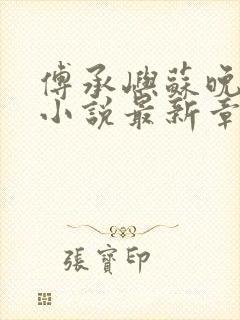 傅承嶼蘇晚
小說最新章
張寶印